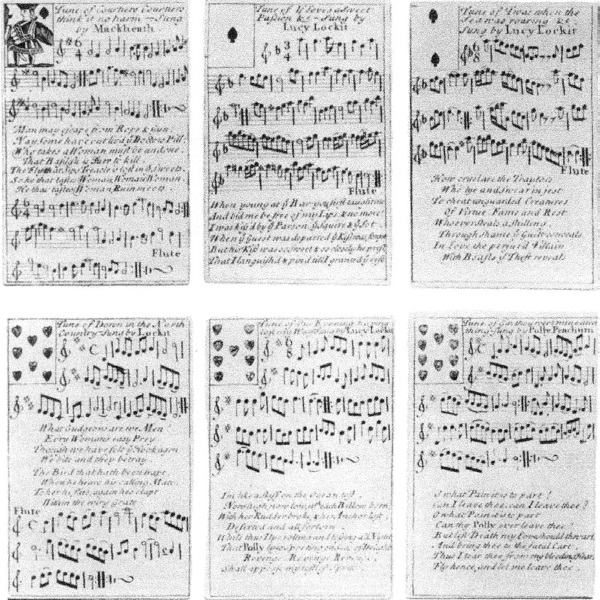 Tune of Courtiers Courtiers
think it no harm — Sung
by Mackheath
6
4
Man may escape from Rope & Gun
Nay Some have outliv'd ye Doctor's Pill
Who takes a Woman must be undone
That Basilisk is sure to kill
The Fly that sips Treacle is lost in ye sweets
So he that tastes Woman Woman Woman
He that tastes Woman Ruin meets
Flute
Tune of If Love's a Sweet
Passion &c — Sung by
Lucy Lockit
3
4
Flute
When young at ye Bar you first taught me
And bid me be free of my Lips & no more
I was kiss'd by ye Parson ye Squire & ye Sot
When ye Guest was departed ye Kiss was forgot
But his Kiss was so sweet & so closely he prest
That I languish'd & pin'd till I granted ye rest
Tune of Twas when the
Sea was roaring &c
Sung by Lucy Lockit
6
8
Flute
How cruel are the Traytors
Who lye and swear in jest
To cheat unguarded Creatures
Of Virtue Fame and Rest
Whoever steals a Shilling
Through Shame ye Guilt conceals
In Love the perjur'd Villain
With Boasts ye Theft reveals
Tune of Down in the North
Country — Sung by Lockit
C
What Gudgeons are we Men
Every Woman's easy Prey
Though we have felt ye Hook again
We bite and they betray
The Bird that hath been trapt
When he hears his calling Mate
To her he flies again he's clapt
Within the wiry Grate
Flute
C
Tune of One Evening having
lost my Way Sung by Lucy Lockit
6
8
I'm like a Skiff on the Ocean tost
Now high now low with each Billow born
With her Rudder broke & her Anchor lost
Deserted and all forlorn
While thus I lye rolling and tossing all Night
That Polly lyes sporting on Seas of Delight
Revenge Revenge Revenge
Shall appease my restless Sprite
Sung by Polly Peachum
C
O what Pain it is to part!
Can I leave thee, can I leave thee?
O what Pain it is to part
Can thy Polly ever leave thee?
But lest Death my Love should thwart
And bring thee to the fatal Cart
Thus I tear thee from my bleeding Heart
Fly hence, and let me leave thee